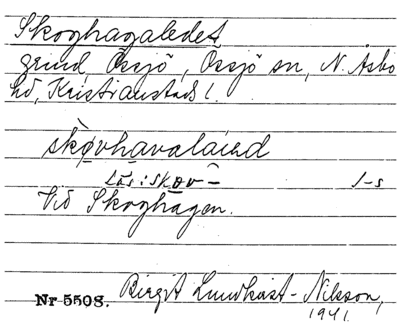 Skoghagaledet
grind, Össjö, Össjö sn, N. Åsbo
hd, Kristianstads l.
skøvhavalàiəd
Läs: skøv- l-s
Vid Skoghagen.
Nr 5508. Birgit Lundkvist-Nilsson,
1941.